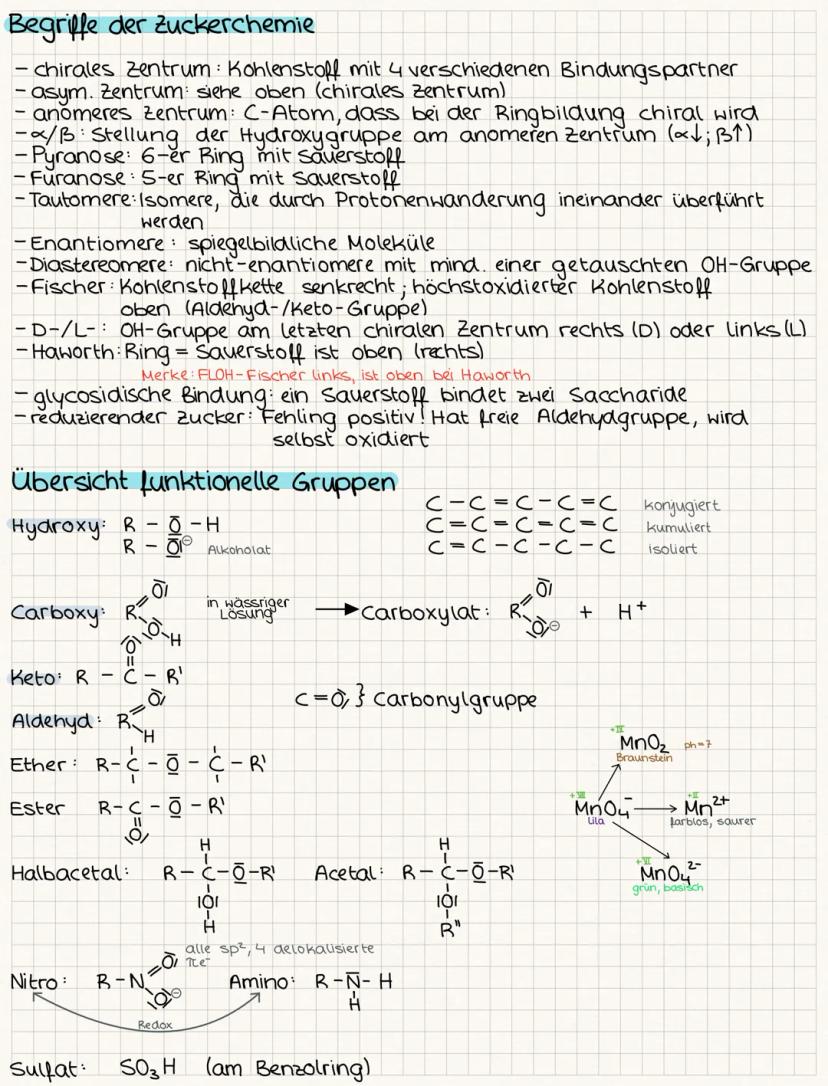 Begriffe der Zuckerchemie
- chirales Zentrum: Kohlenstoff mit 4 verschiedenen Bindungspartner
- asym. Zentrum: siehe oben (chirales Zentrum)
- anomeres Zentrum: C-Atom, dass bei der Ringbildung chiral wird
- α/β: Stellung der Hydroxygruppe am anomeren Zentrum (α↓; β↑)
- Pyranose: 6-er Ring mit Sauerstoff
- Furanose: 5-er Ring mit Sauerstoff
- Tautomere: Isomere, die durch Protonenwanderung ineinander überführt
werden
- Enantiomere: spiegelbildliche Moleküle
- Diastereomere: nicht-enantiomere mit mind. einer getauschten OH-Gruppe
- Fischer: Kohlenstoffkette senkrecht; höchstoxidierter Kohlenstoff
oben (Aldehyd-/Keto-Gruppe)
- D-/L-: OH-Gruppe am letzten chiralen Zentrum rechts (D) oder links (L)
- Haworth: Ring = Sauerstoff ist oben (rechts)
Merke: FLOH-Fischer links, ist oben bei Haworth
- glycosidische Bindung: ein Sauerstoff bindet zwei Saccharide
- reduzierender Zucker: Fehling positiv! Hat freie Aldehydgruppe, wird
selbst oxidiert
Übersicht funktionelle Gruppen
C - C = C - C = C konjugiert
Hydroxy: R - O - H
C = C = C = C = C kumuliert
R - O⊖ Alkoholat
C = C - C - C - C isoliert
Carboxy: R O O H in wässriger
Lösung
→ Carboxylat: R O O⊖ + H+
Keto: R - C - R'
O
C = O } Carbonylgruppe
Aldehyd: R O H
Ether: R - C - O - C - R'
Ester R - C - O - R'
O
+IV
MnO2 ph=7
Braunstein
+VII
MnO4-
lila
+II
Mn2+
farblos, saurer
+VI
MnO4 2-
grün, basisch
Halbacetal: H
R - C - O - R'
O
H
Acetal: H
R - C - O - R'
O
R"
alle sp², 4 delokalisierte
πe-
Nitro: R - N O O⊖
Amino: R - N - H
H
Redox
Sulfat: SO3H (am Benzolring)